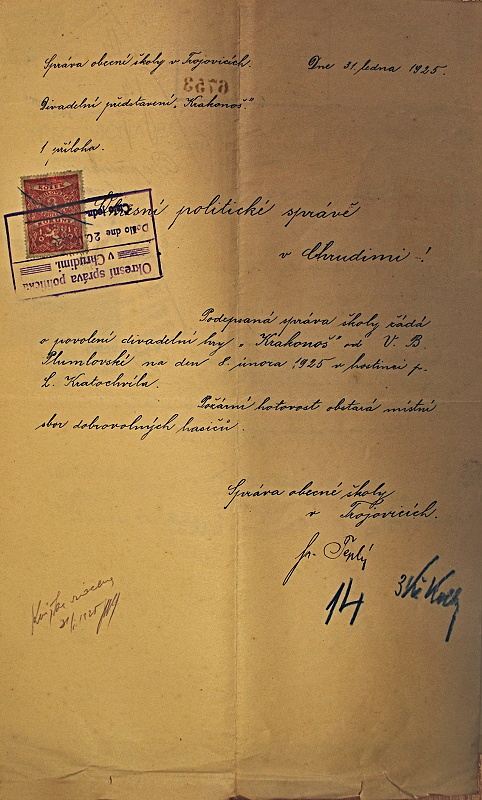 Správa obecní školy v Trojovicích.
Dne 31. ledna 1925.
6753
Divadelní představení „Krakonoš."
1 příloha.
KOLEK
Okresní politické správě
v Chrudimi !
Okresní správa politická
v Chrudimi.
Došlo dne 2
Podepsaná správa školy žádá
o povolení divadelní hry „Krakonoš" od V. B
Plumlovské na den 8. února 1925 v hostinci p.
L. Kratochvíla.
Požární hotovost obstará místní
sbor dobrovolných hasičů.
Správa obecné školy
v Trojovicích.
Fr. Teplý
14
3 Kč